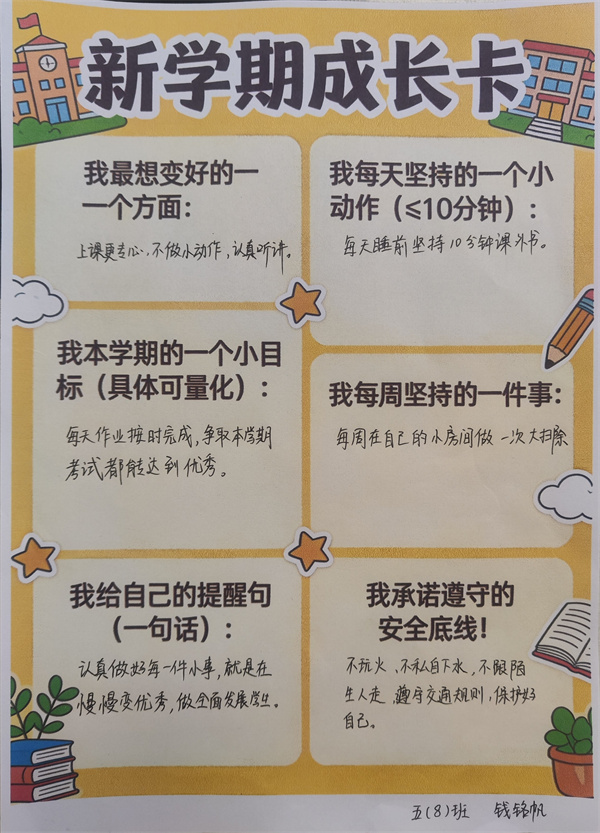 新学期成长卡
我最想变好的一
一个方面：
上课更专心，不做小动作，认真听讲。
我每天坚持的一个小
动作（≤10分钟）：
每天睡前坚持10分钟课外书。
我本学期的一个小目
标（具体可量化）：
每天作业按时完成，争取本学期
考试都能达到优秀。
我每周坚持的一件事：
每周在自己的小房间做一次大扫除
我给自己的提醒句
（一句话）：
认真做好每一件小事，就是在
慢慢变优秀，做全面发展学生。
我承诺遵守的
安全底线！
不玩火、不私自下水，不跟陌
生人走，遵守交通规则，保护好
自己。
五（8）班 钱铭帆